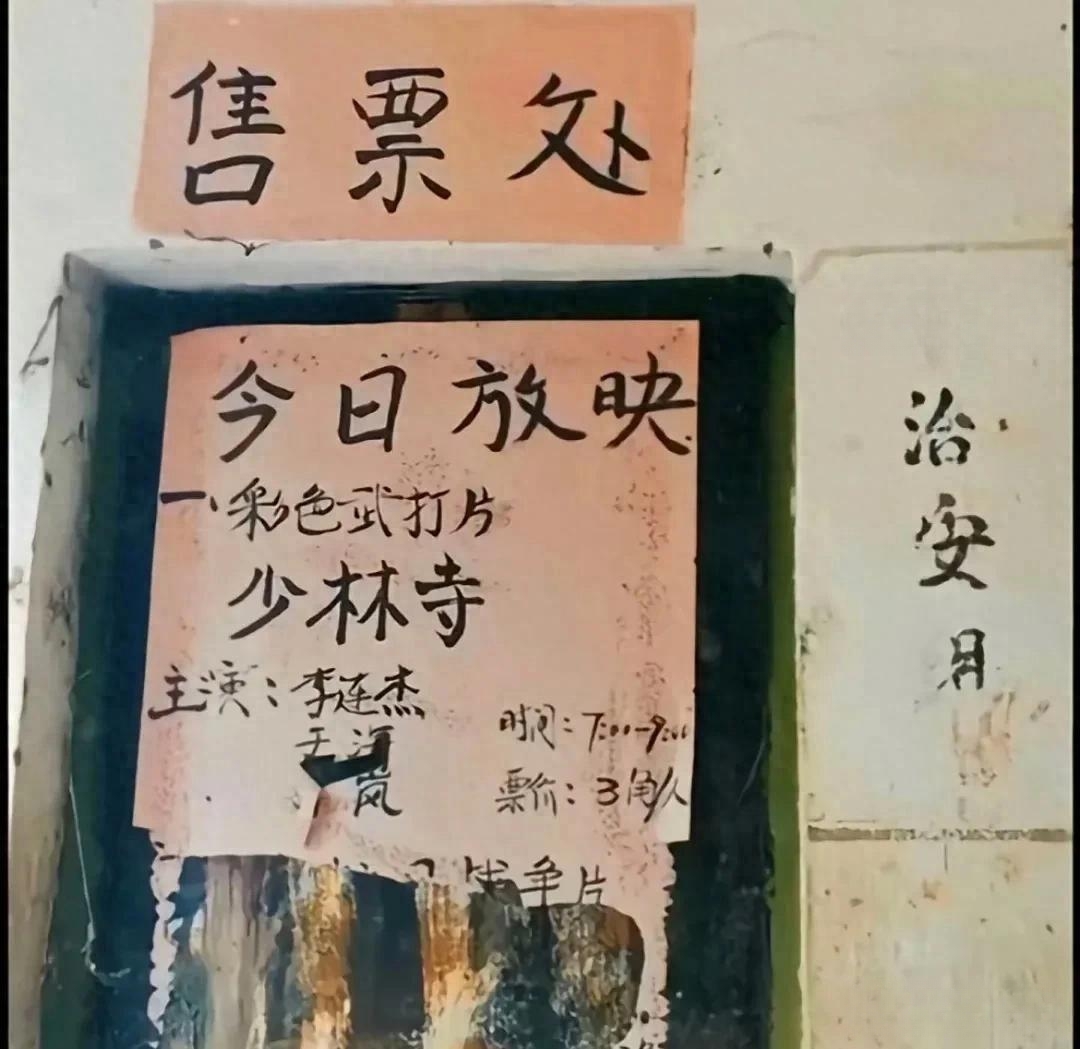 售票处
今日放映
一、彩色武打片
少林寺
主演：李连杰
于海
岚
时间：7:00-9:00
票价：3角/人
战争片
治安月